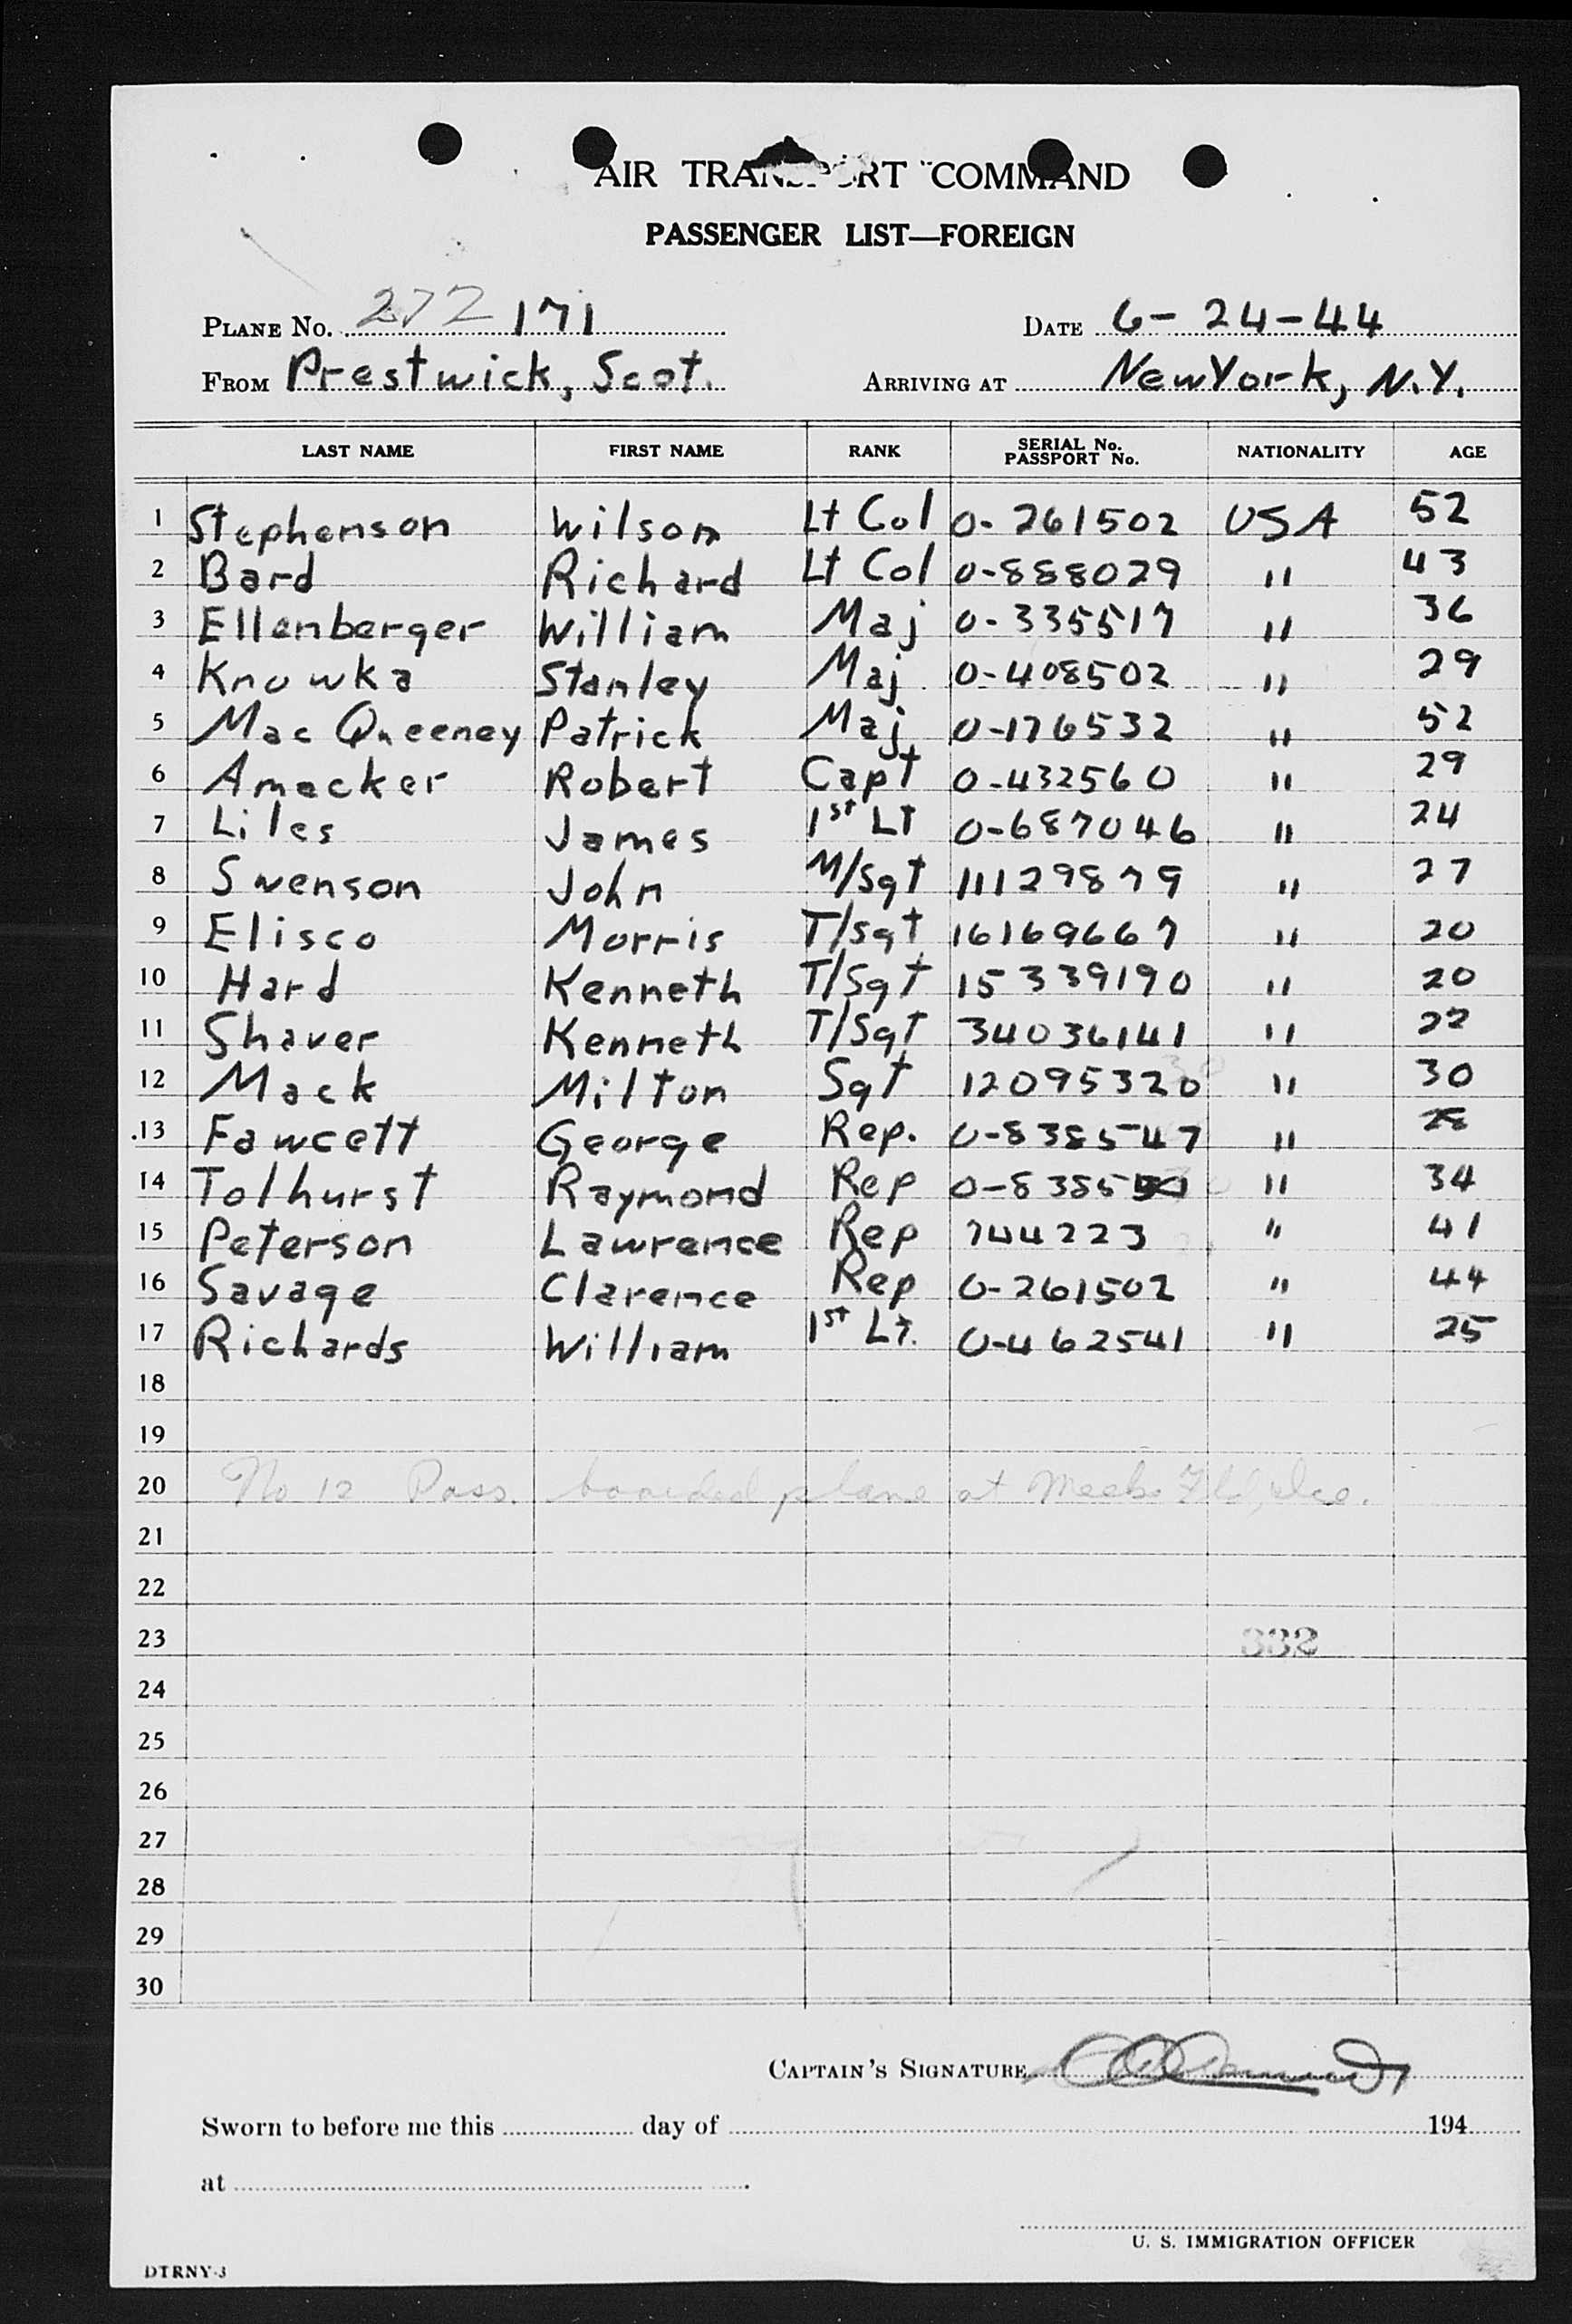 AIR TRANSPORT COMMAND
PASSENGER LIST—FOREIGN
PLANE No. 272 171 DATE 6-24-44
FROM Prestwick, Scot. ARRIVING AT New York, N.Y.
LAST NAME FIRST NAME RANK SERIAL No. PASSPORT No. NATIONALITY AGE
1 Stephenson Wilson Lt Col 0-261502 USA 52
2 Bard Richard Lt Col 0-888029 " 43
3 Ellenberger William Maj 0-335517 " 36
4 Knowka Stanley Maj 0-408502 " 29
5 Mac Queeney Patrick Maj 0-176532 " 52
6 Amacker Robert Capt 0-432560 " 29
7 Liles James 1st Lt 0-687046 " 24
8 Swenson John M/Sgt 11129879 " 27
9 Elisco Morris T/Sgt 16169667 " 20
10 Hard Kenneth T/Sgt 15339190 " 20
11 Shaver Kenneth T/Sgt 34036141 " 22
12 Mack Milton Sgt 12095320 " 30
13 Fawcett George Rep. 0-838547 " 28
14 Tolhurst Raymond Rep " 34
15 Peterson Lawrence Rep 744223 " 41
16 Savage Clarence Rep 0-261502 " 44
17 Richards William 1st Lt. 0-462541 " 25
18
19
20 No 12 Pass. boarded plane at Meeks Fld, Ice.
21
22
23 332
24
25
26
27
28
29
30
CAPTAIN'S SIGNATURE
Sworn to before me this day of 194
at
U. S. IMMIGRATION OFFICER
DTRNY-3